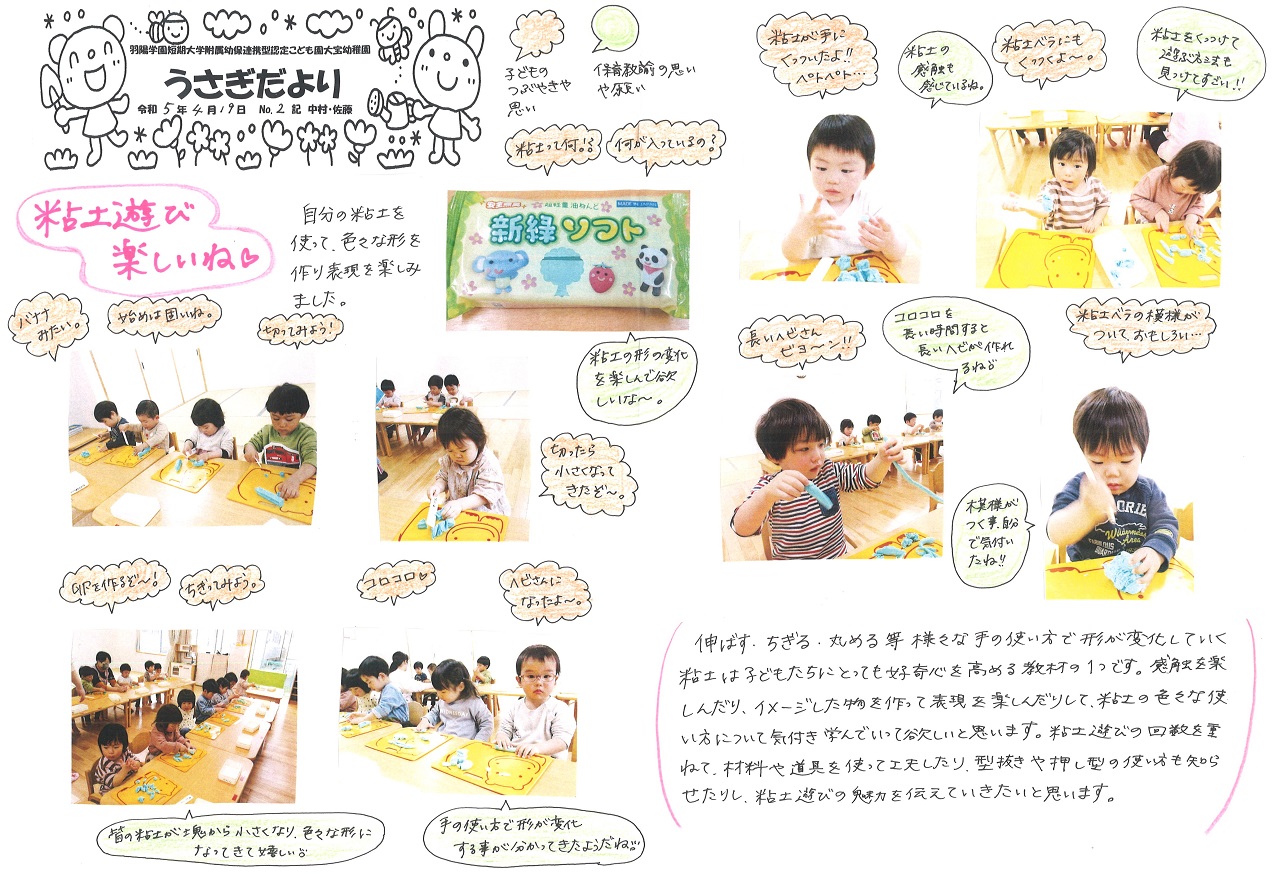 羽陽学園短期大学附属幼保連携型認定こども園大宝幼稚園
うさぎだより
令和5年4月19日 No.2 記 中村・佐藤
子どもの
つぶやきや
思い
保育教諭の思い
や願い
粘土って何!?
何が入っているの?
粘土遊び
楽しいね♡
自分の粘土を
使って、色々な形を
作り表現を楽しみ
ました。
超軽量油ねんど
MADE IN JAPAN
新緑ソフト
粘土の形の変化
を楽しんで欲
しいな〜。
バナナ
みたい。
始めは固いね。
切ってみよう!
切ったら
小さくなって
きたぞ〜。
卵を作るぞ〜!
ちぎってみよう。
コロコロ♡
ヘビさんに
なったよ〜。
皆の粘土が塊から小さくなり、色々な形に
なってきて嬉しい
手の使い方で形が変化
する事が分かってきたようだね
粘土が手に
くっついたよ!!
ペトペト…
粘土の
感触も
感じているね。
粘土ベラにも
くっつくよ〜。
粘土をくっつけて
遊ぶ方法も
見つけてすごい!!
長いヘビさん
ビヨ〜ン!!
コロコロを
長い時間すると
長いヘビが作れ
るね
粘土ベラの模様が
ついて、おもしろい…
模様が
つく事、自分
で気付い
たね!!
伸ばす・ちぎる・丸める等 様々な手の使い方で形が変化していく
粘土は子どもたちにとっても好奇心を高める教材の1つです。感触を楽
しんだり、イメージした物を作って表現を楽しんだりして、粘土の色々な使
い方について気付き学んでいって欲しいと思います。粘土遊びの回数を重
ねて、材料や道具を使って工夫したり、型抜きや押し型の使い方も知ら
せたりし、粘土遊びの魅力を伝えていきたいと思います。